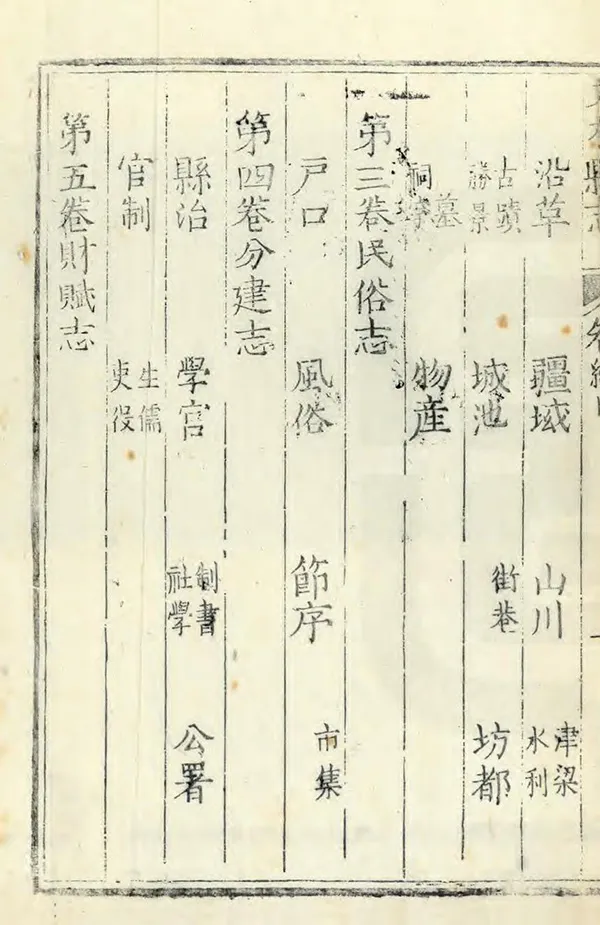 縣志
沿革 疆域 山川 津梁 水利
古蹟 勝景 城池 街巷 坊都
墓 祠 物産
第三卷民俗志
戶口 風俗 節序 市集
第四卷分建志
縣治 學宮 制書 社學 公署
官制 生儒 吏役
第五卷財賦志